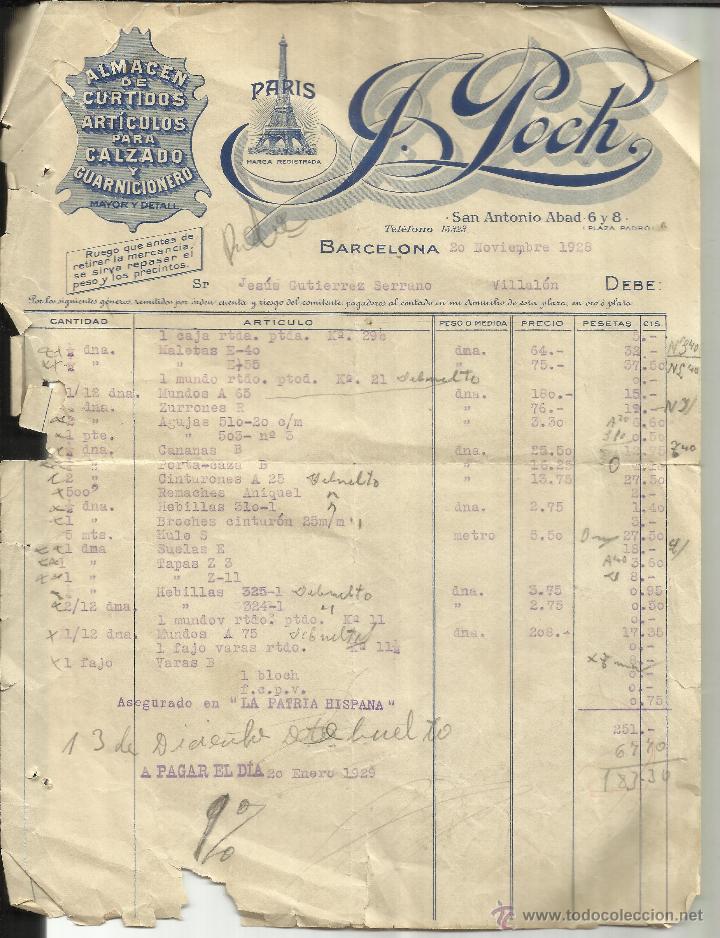 ALMACÉN
DE
CURTIDOS
ARTÍCULOS
PARA
CALZADO
Y
GUARNICIONERO
MAYOR Y DETALL
PARIS
MARCA REGISTRADA
J. Poch.
San Antonio Abad 6 y 8
(PLAZA PADRÓ)
Teléfono 15323
Ruego que antes de
retirar la mercancía,
se sirva repasar el
peso y los precintos.
BARCELONA 20 Noviembre 1928
Sr Jesús Gutierrez Serrano Villalón DEBE:
Por los siguientes géneros remitidos por orden cuenta y riesgo del comitente pagaderos al contado en mi domicilio de esta plaza, en oro ó plata
CANTIDAD ARTICULO PESO O MEDIDA PRECIO PESETAS CTS.
1 caja rtda. ptda. Kº. 29½ 5.-
½ dna. Maletas E-40 dna. 64.- 32.-
½ " " E-55 " 75.- 37.50
1 mundo rtdo. ptod. Kº. 21
1/12 dna. Mundos A 65 180.- 15.-
dna. Zurrones R " 76.- 19.-
Agujas 510-20 c/m " 3.30 6.60
1 pte. " 503- nº 3 0.50
dna. Cananas B dna. 25.50 12.75
Porta-caza B " 16.25
2 " Cinturones A 25 Debuelto " 13.75 27.50
500 Remaches Aníquel 2.-
dna. Hebillas 310-1 dna. 2.75 1.40
1 " Broches cinturón 25m/m 3.-
5 mts. Hule S metro 5.50 27.50
1 dma Suelas E 18.-
1 " Tapas Z 3 3.60
1 " " Z-11 8.-
" Hebillas 325-1 Debuelto dna. 3.75 0.95
2/12 dma " 324-1 " " 2.75 0.50
1 mundov rtdo. ptdo. Kº 11 0.-
1/12 dna. Mundos A 75 Debuelto dna. 208.- 17.35
1 fajo varas rtdo. Kº 11½ 0.-
1 fajo Varas B 8.-
1 bloch 0.-
f.c.p.v. 0.-
Asegurado en "LA PATRIA HISPANA" 0.75
251.-
67 70
183.30
13 de Diciembre
A PAGAR EL DÍA 20 Enero 1929
todocoleccion.net